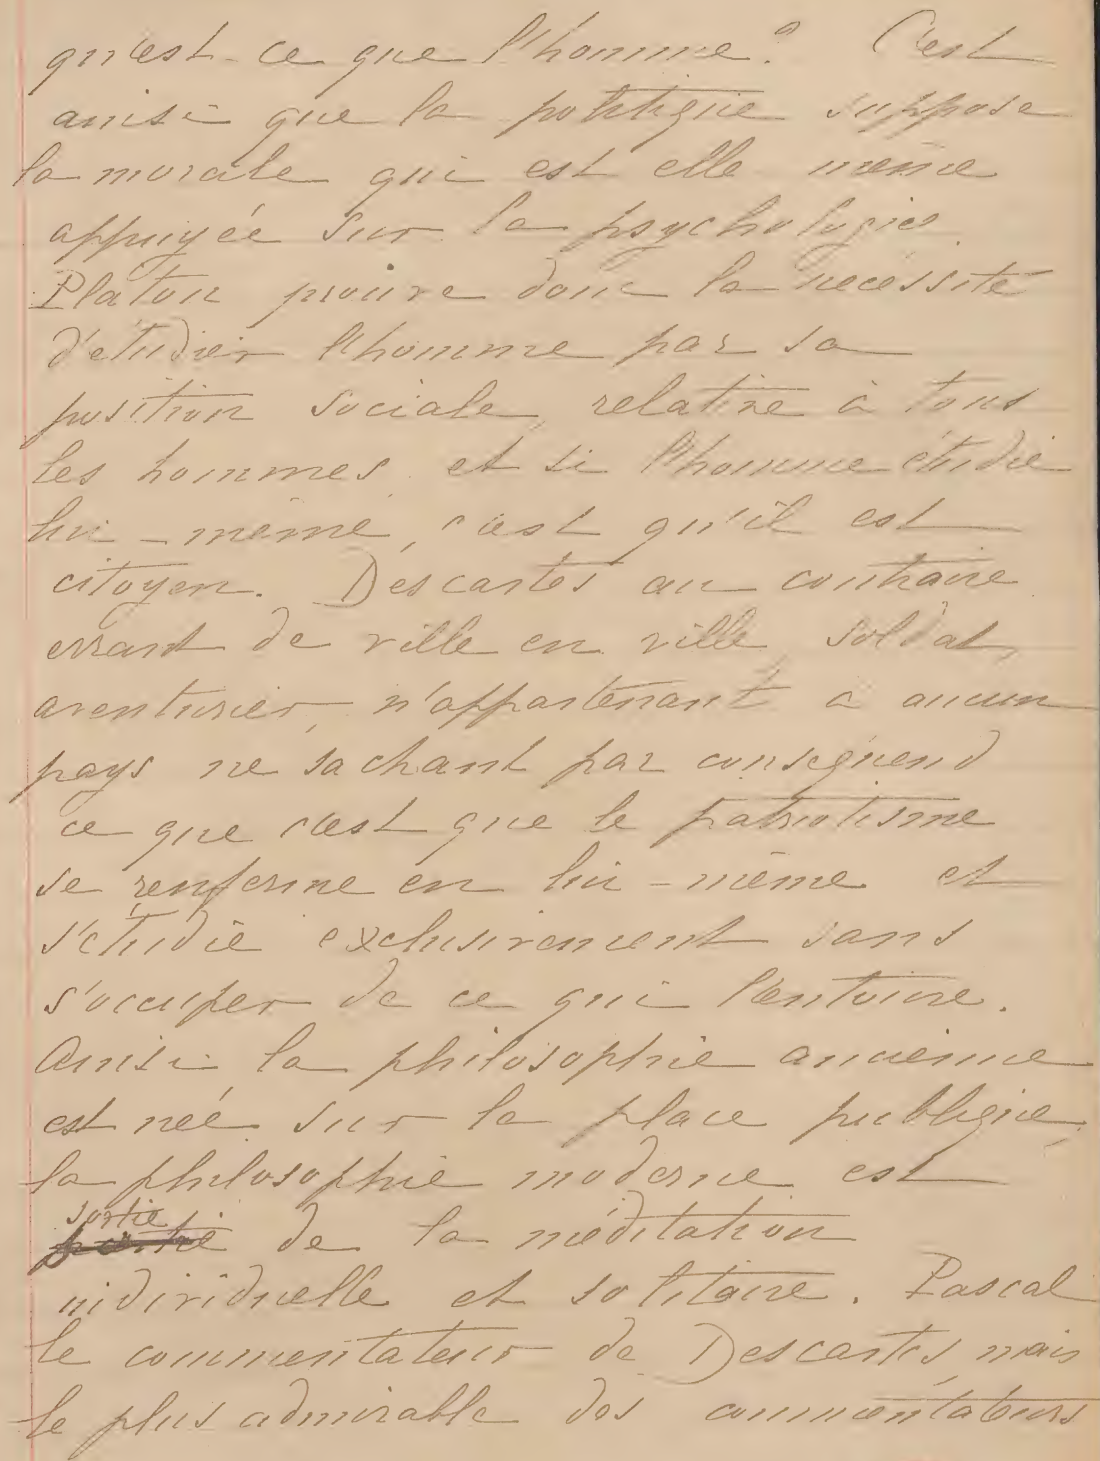 qu'est-ce que l'homme? C'est
ainsi que la politique suppose
la morale qui est elle même
appuyée sur la psychologie.
Platon prouve donc la necessité
d'etudier l'homme par sa
position sociale, relative à tous
les hommes, et si l'homme étudie
lui-même, c'est qu'il est
citoyen. Descartes au contraire
errant de ville en ville, soldat,
aventurier, n'appartenant à aucun
pays ne sachant par conséquend
ce que c'est que le patriotisme
se renferme en lui-même et
s'étudie exclusivement sans
s'occuper de ce qui l'entoure.
Ainsi la philosophie ancienne
est née sur la place publique,
la philosophie moderne est
sortie de la méditation
individuelle et solitaire. Pascal
le commentateur de Descartes, mais
le plus admirable des commentateurs